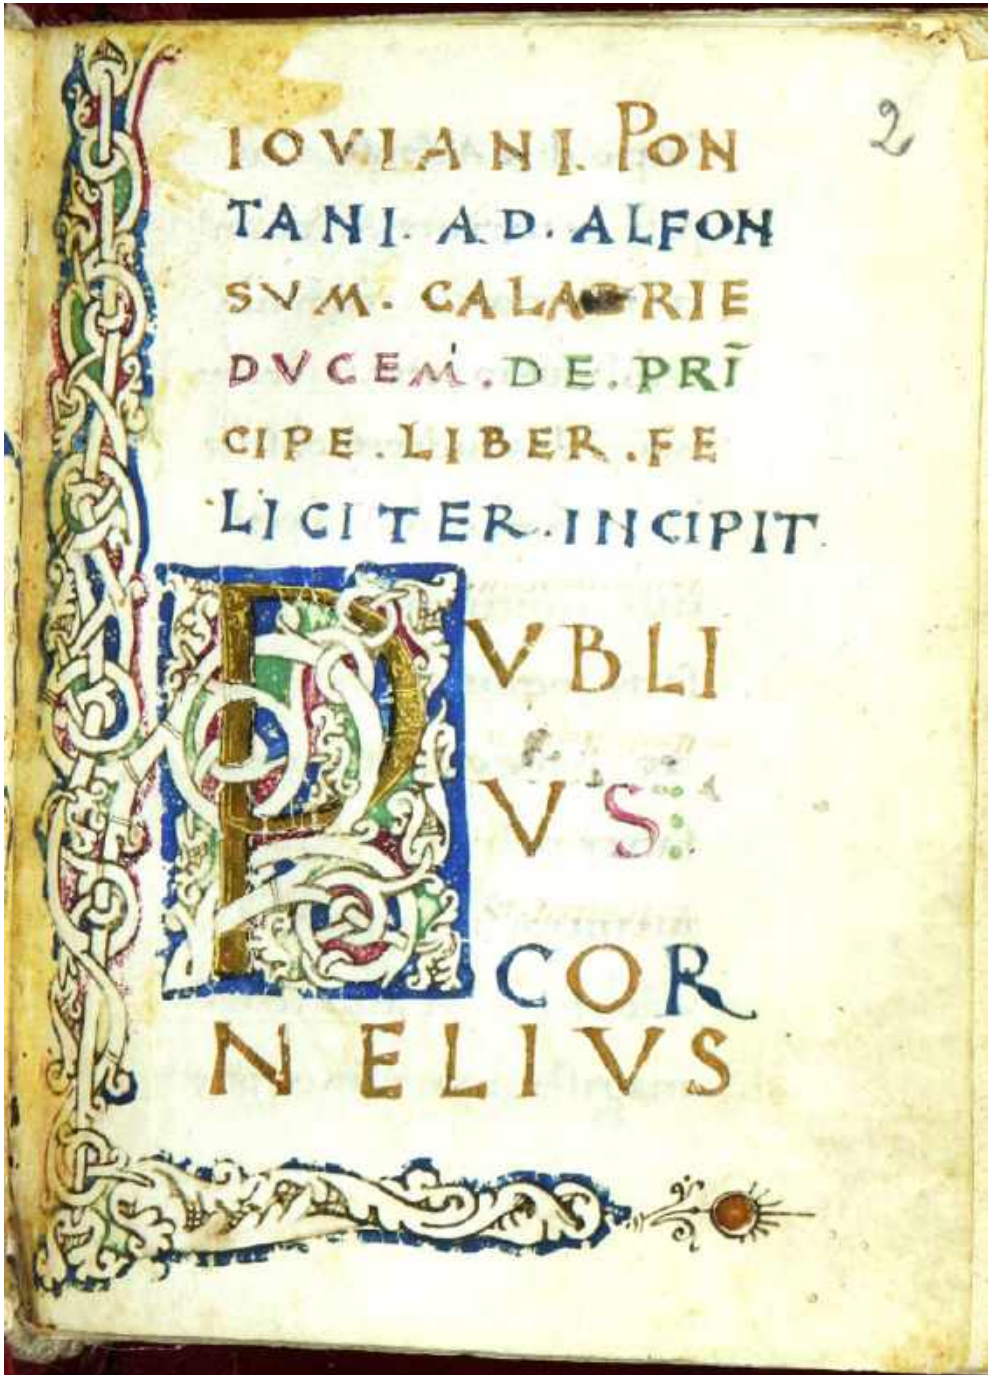 2
IOVIANI. PON
TANI. AD. ALFON
SVM. CALABRIE
DVCEM. DE. PRĪ
CIPE. LIBER. FE
LICITER. INCIPIT.
PVBLI
VS
COR
NELIVS